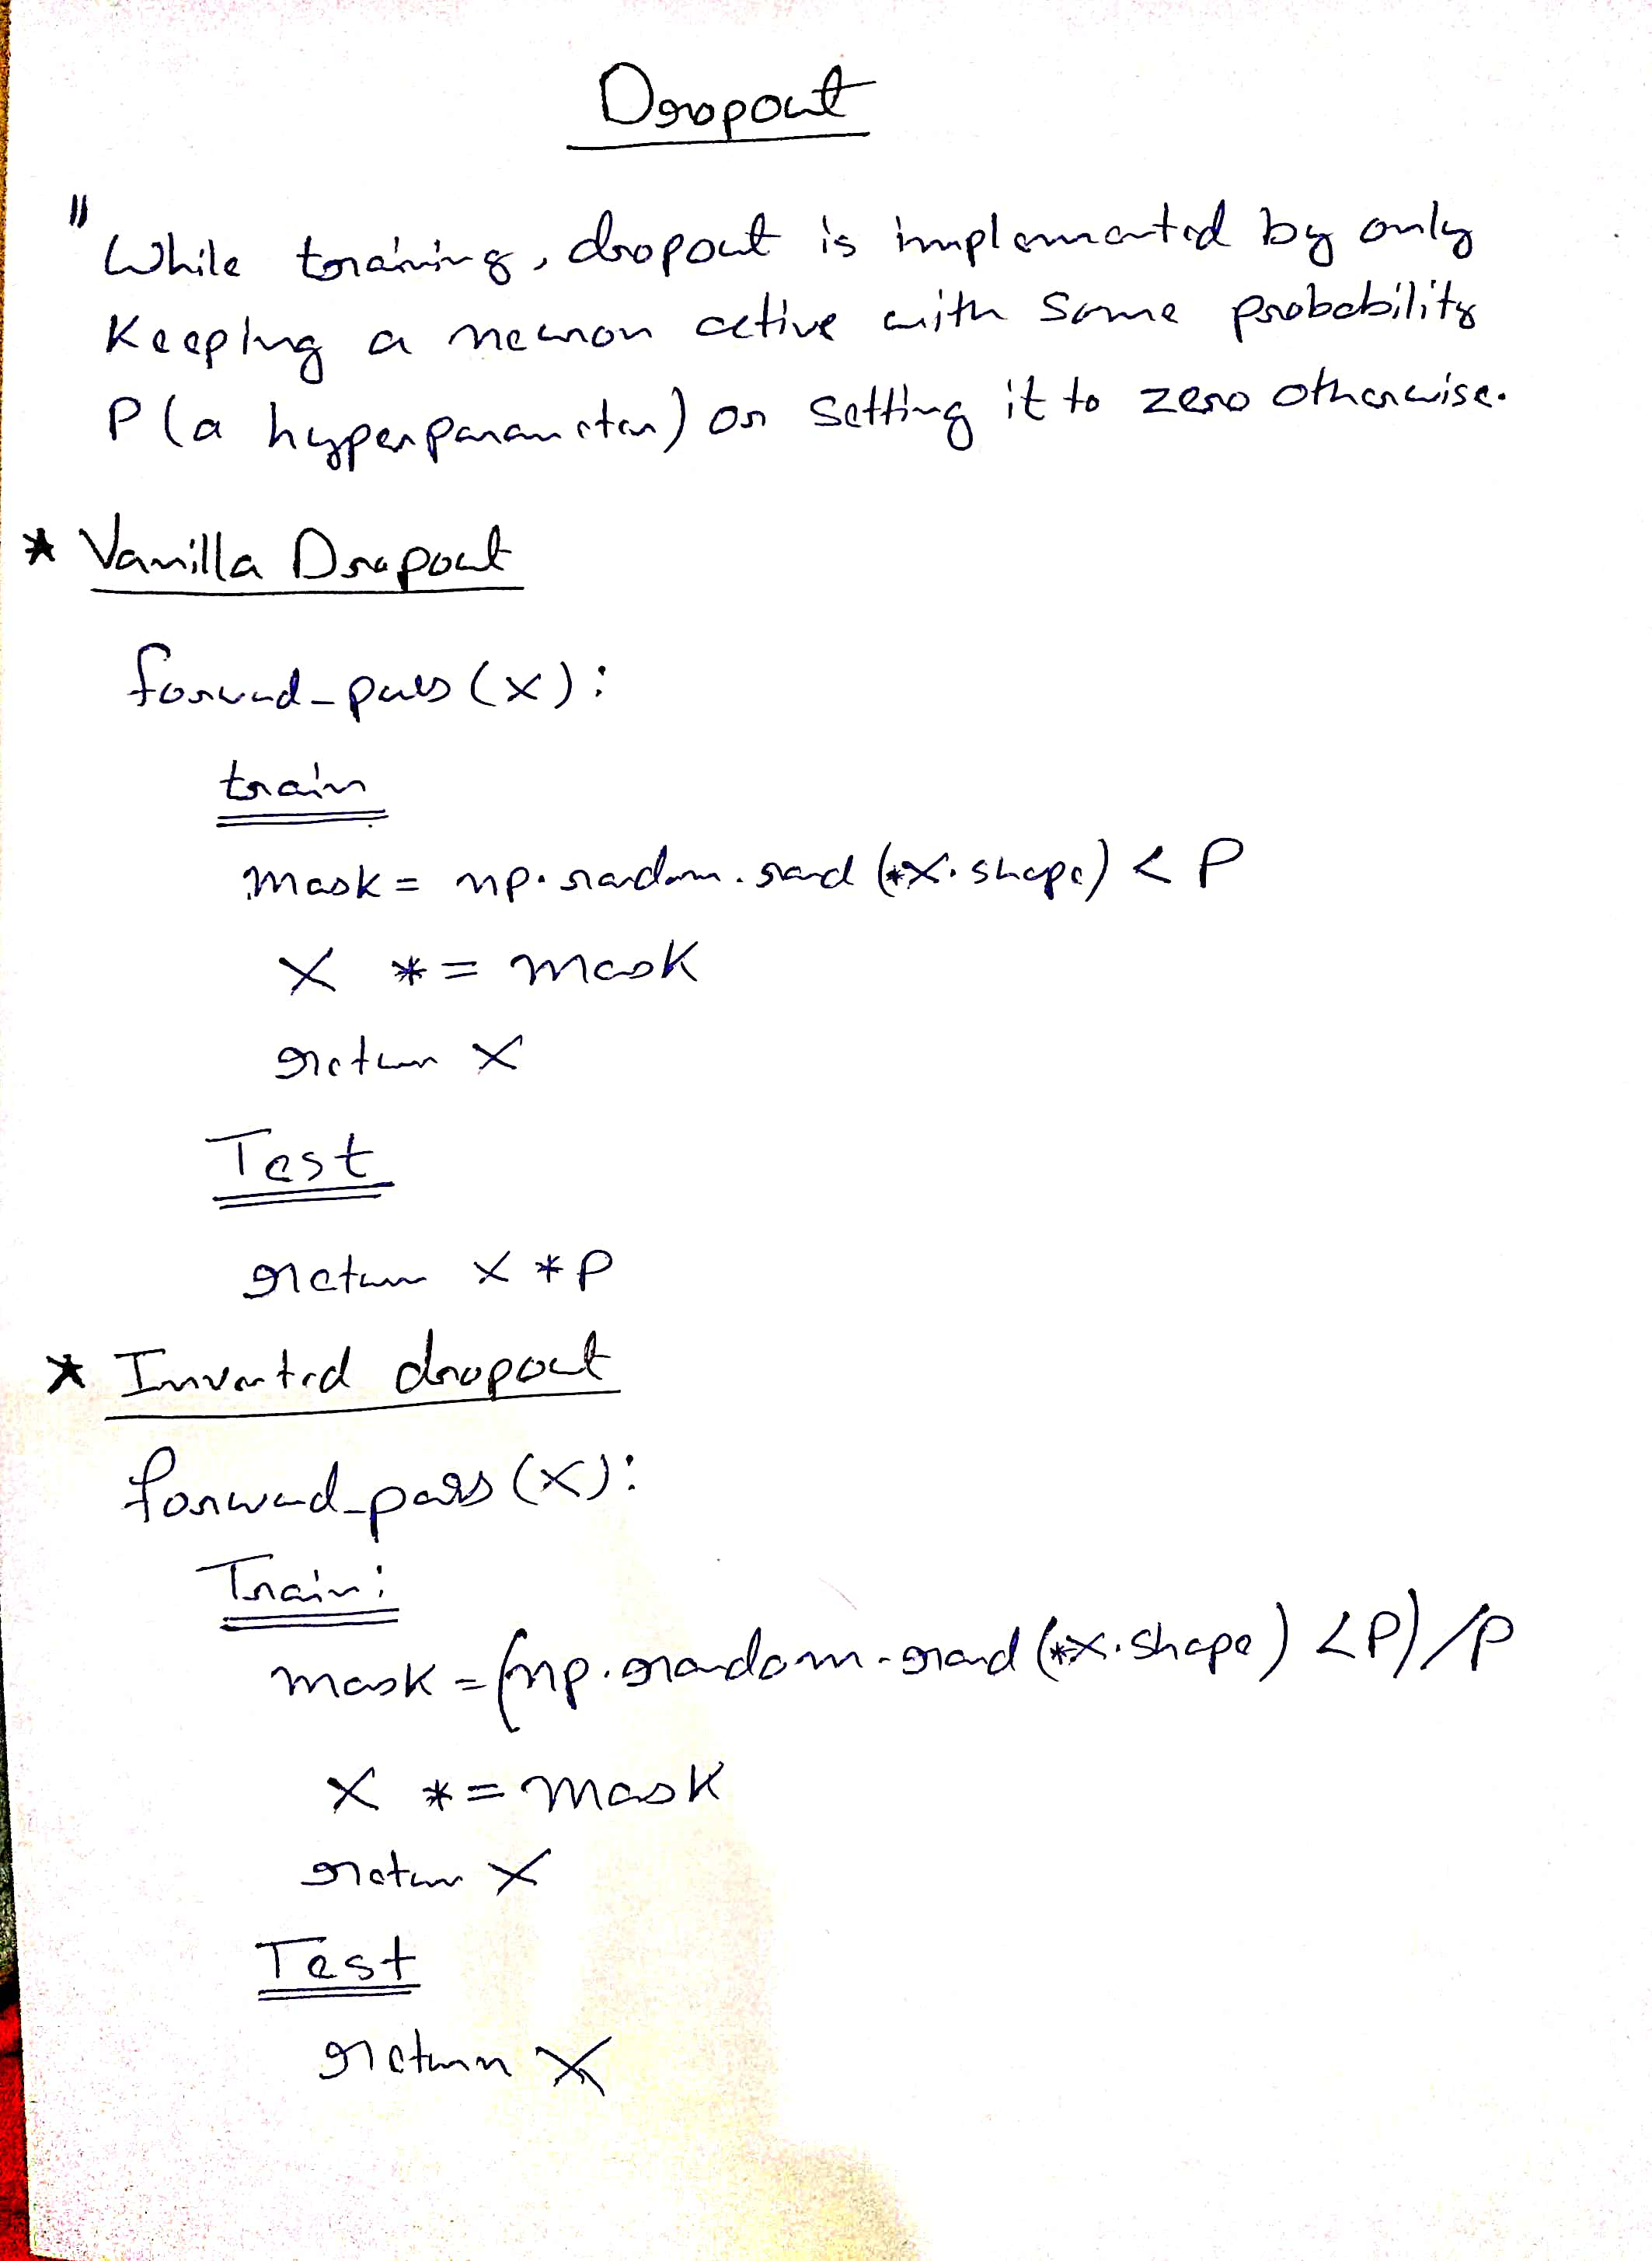 Dropout
" While training, dropout is implemented by only
Keeping a neuron active with some probability
P (a hyperparameter) or setting it to zero otherwise.
* Vanilla Dropout
forward_pass (x):
train
mask = np.random.rand (*x.shape) < P
X *= mask
return X
Test
return X * P
* Inverted dropout
forward_pass (x):
Train:
mask = (np.random.rand (*x.shape) < P) / P
X *= mask
return X
Test
return X